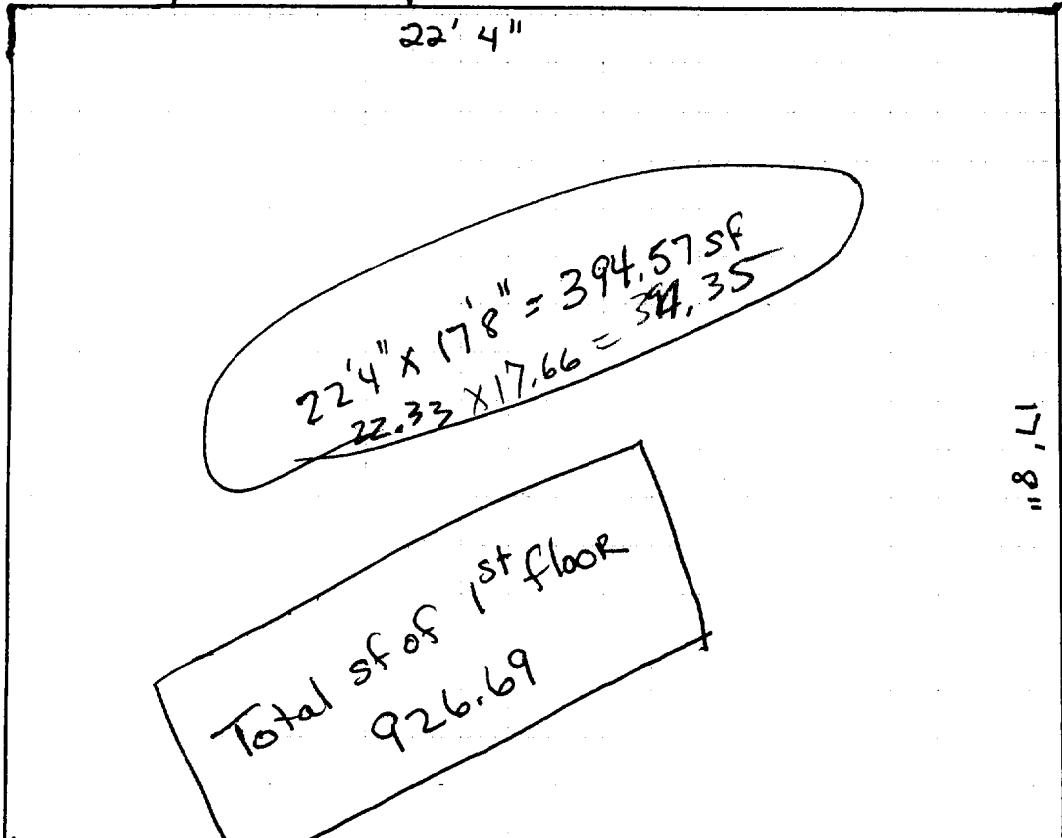 22' 4"
22'4" x 17'8" = 394.57 sf
22.33 x 17.66 = 394.35
17' 8"
Total sf of 1st floor
926.69